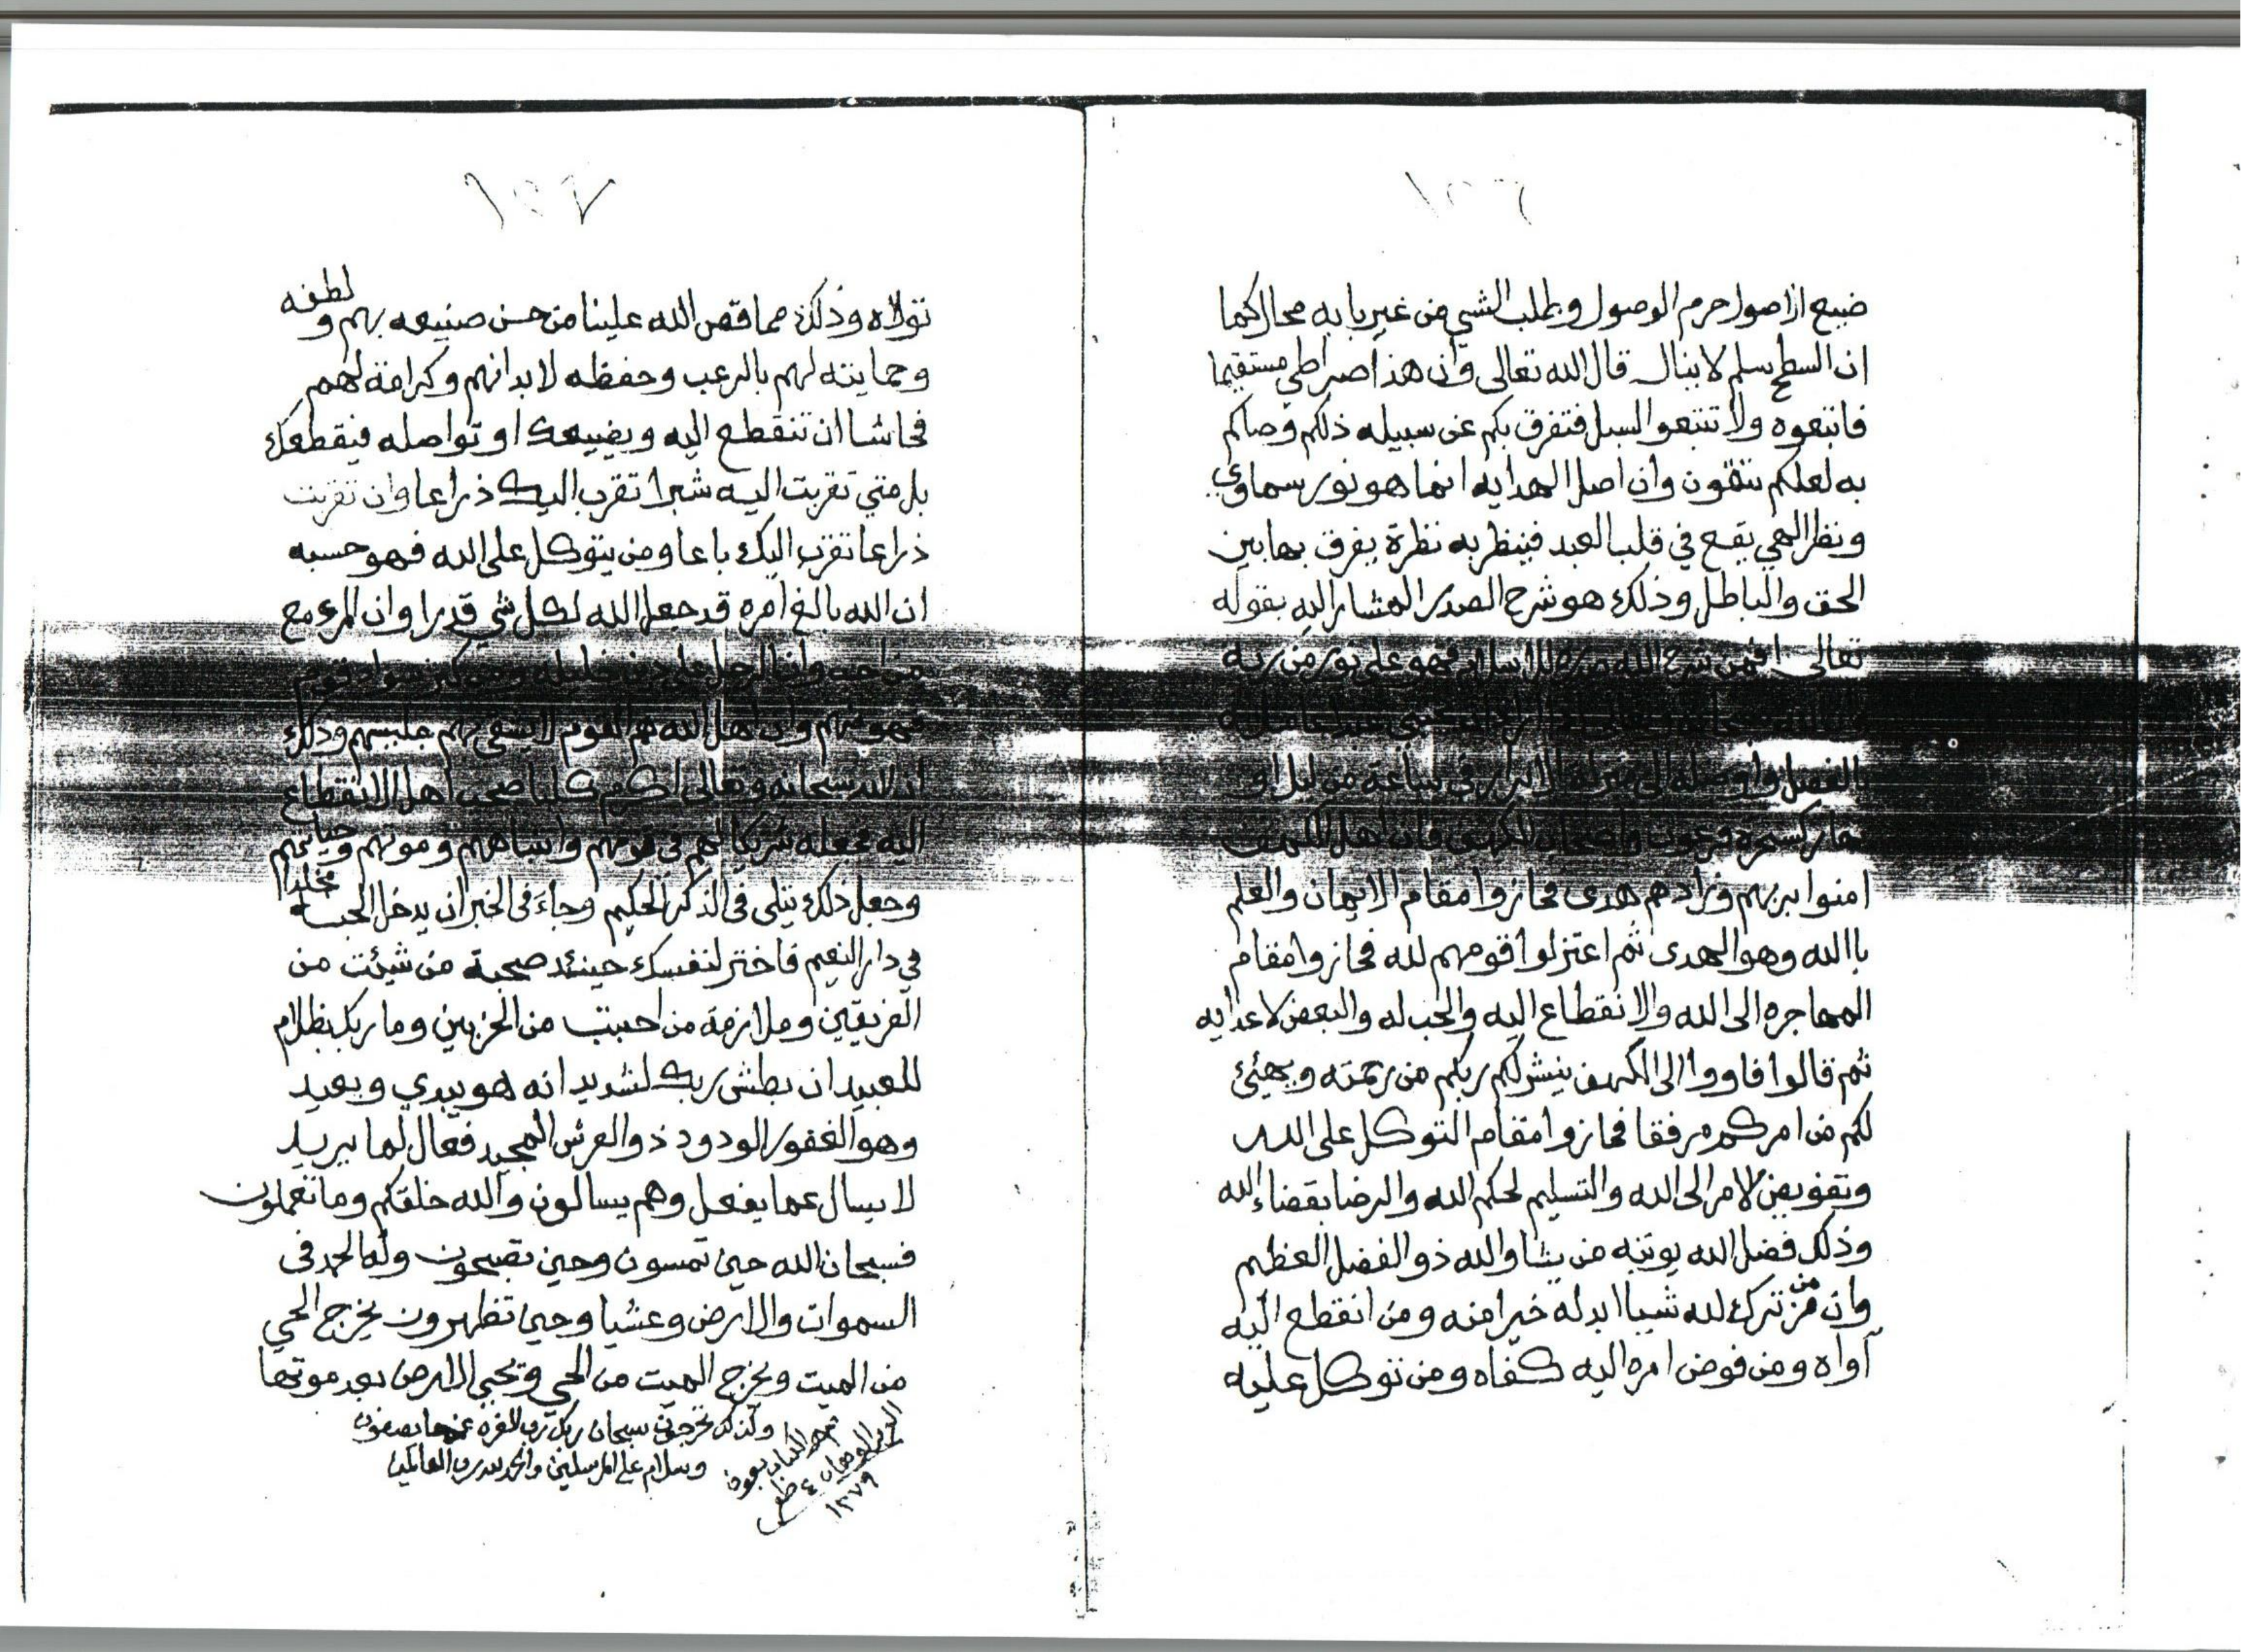 ١٥٦
ضيع الاصول حرم الوصول وطلب الشي من غير بابه محال كما
ان السطح بسلم لا ينال قال الله تعالى وان هذا صراطي مستقيما
فاتبعوه ولا تتبعوا السبل فتفرق بكم عن سبيله ذلكم وصاكم
به لعلكم تتقون وان اصل الهدايه انما هو نور سماوي
ونظر الهي يقع في قلب العبد فينظر به نظرة يفرق بها بين
الحق والباطل وذلك هو شرح الصدر المشار اليه بقوله
تعالى افمن شرح الله صدره للاسلام فهو على نور من ربه
بالفضل واوصله الى منزلة الابرار في ساعة من ليل او
نهار كسحرة فرعون واصحاب الكهف فان اهل الكهف
امنوا بربهم وزادهم هدى فحازوا مقام الايمان والعلم
باالله وهو الهدى ثم اعتزلوا قومهم لله فحازوا مقام
المهاجره الى الله والانقطاع اليه والحب له والبغض لاعدايه
ثم قالوا فاووا الى الكهف ينشر لكم ربكم من رحمته ويهيئ
لكم من امركم مرفقا فحازوا مقام التوكل على الله
وتفويض الامر الى الله والتسليم لحكم الله والرضا بقضاء الله
وذلك فضل الله يوتيه من يشا والله ذو الفضل العظيم
وان من ترك لله شيا ابدله خيرا منه ومن انقطع اليه
آواه ومن فوض امره اليه كفاه ومن توكل عليه
١٥٧
تولاه وذلك مما قص الله علينا من حسن صنيعه بهم ولطفه
وحمايته لهم بالرعب وحفظه لابدانهم وكرامة لهم
فحاشا ان تنقطع اليه ويضيعك او تواصله فيقطعك
بل متي تقربت اليه شبرا تقرب اليك ذراعا وان تقربت
ذراعا تقرب اليك باعا ومن يتوكل على الله فهو حسبه
ان الله بالغ امره قد جعل الله لكل شي قدرا وان المرء مع
من احب وان الرجل على دين خليله ومن كثر سواد قوم
فهو منهم وان اهل الله هم القوم لا يشقى بهم جليسهم وذلك
ان الله سبحانه وتعالى اكرم كلبا صحب اهل الانقطاع
اليه فجعله شريكا لهم في نومهم وانتباههم وموتهم وحياتهم
وجعل ذلك يتلى في الذكر الحكيم وجاء في الخبر ان يدخل الجنة مخلدا
في دار النعيم فاختر لنفسك حينئد صحبة من شيئت من
الفريقين وملازمة من احببت من الحزبين وما ربك بظلام
للعبيد ان بطش ربك لشديد انه هو يبدي ويعيد
وهو الغفور الودود ذو العرش المجيد فعال لما يريد
لا يسال عما يفعل وهم يسالون والله خلقكم وما تعملون
فسبحان الله حين تمسون وحين تصبحون وله الحمد في
السموات والارض وعشيا وحين تظهرون يخرج الحي
من الميت ويخرج الميت من الحي ويحيي الارض بعد موتها
وكذلك تخرجون سبحان ربك رب العزه عما يصفون
وسلام على المرسلين والحمد لله رب العالمين
تم هذا الكتاب بعون
١٢٧٩